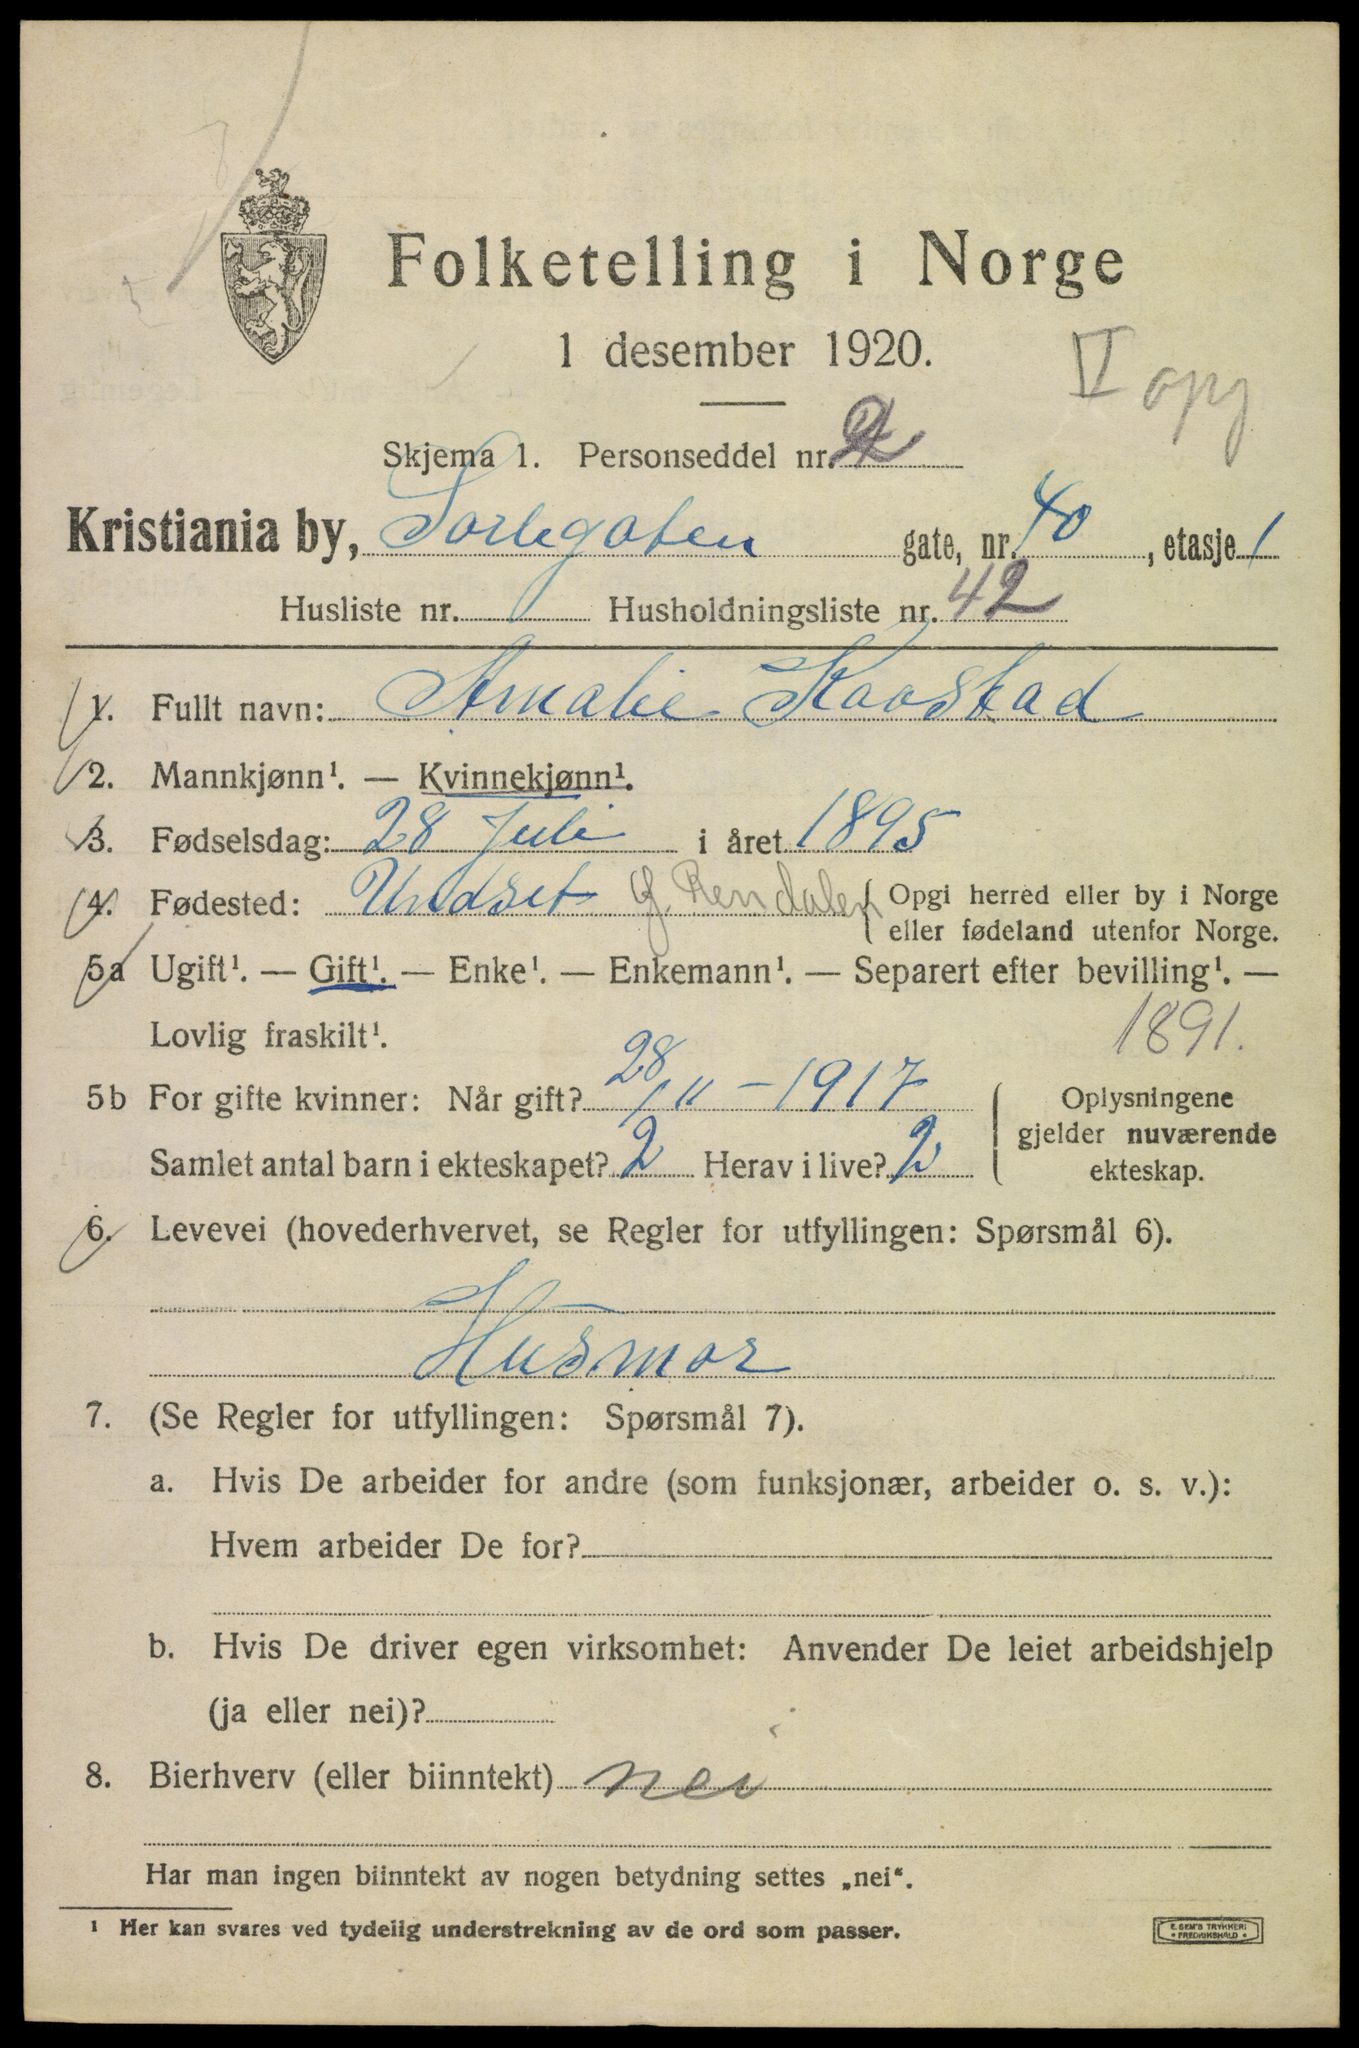 Folketelling i Norge
1 desember 1920.
V opg
Skjema 1. Personseddel nr. 2
Kristiania by, Sorlegaten gate, nr. 40, etasje 1
Husliste nr. Husholdningsliste nr. 42
1. Fullt navn: Amalie Kaastad
2. Mannkjønn¹. — Kvinnekjønn¹.
3. Fødselsdag: 28 Juli i året 1895
4. Fødested: Undset Rendalen { Opgi herred eller by i Norge
eller fødeland utenfor Norge.
5a Ugift¹. — Gift¹. — Enke¹. — Enkemann¹. — Separert efter bevilling¹. —
Lovlig fraskilt¹. 1891.
5b For gifte kvinner: Når gift? 28/11 – 1917
Samlet antal barn i ekteskapet? 2 Herav i live? 2
Oplysningene
gjelder nuværende
ekteskap.
6. Levevei (hovederhvervet, se Regler for utfyllingen: Spørsmål 6).
Husmor
7. (Se Regler for utfyllingen: Spørsmål 7).
a. Hvis De arbeider for andre (som funksjonær, arbeider o. s. v.):
Hvem arbeider De for?
b. Hvis De driver egen virksomhet: Anvender De leiet arbeidshjelp
(ja eller nei)?
8. Bierhverv (eller biinntekt) nei
Har man ingen biinntekt av nogen betydning settes „nei“.
¹ Her kan svares ved tydelig understrekning av de ord som passer.
E. SEM'S TRYKKERI
FREDRIKSHALD